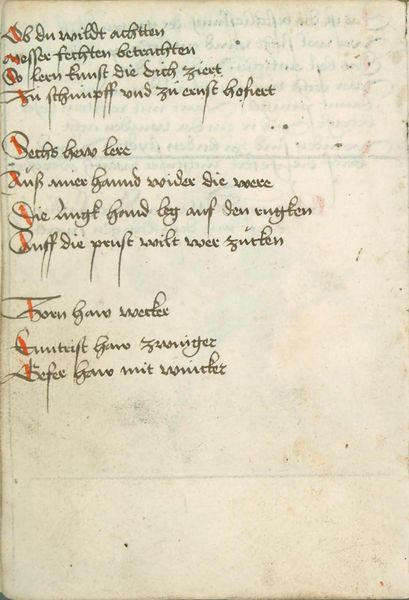 Ob du wildt achtten
messer fechten betrachten
So lern kunst die dich ziert
Zu schimpff vnd zu ernst hofiert
Sechs hew lere
Auß einer hannd wider die were
Die lingk hand leg auf den rugken
Auff die prust wilt wer zucken
Zorn haw wecker
Entrist haw zwinger
Gefer haw mit wincker